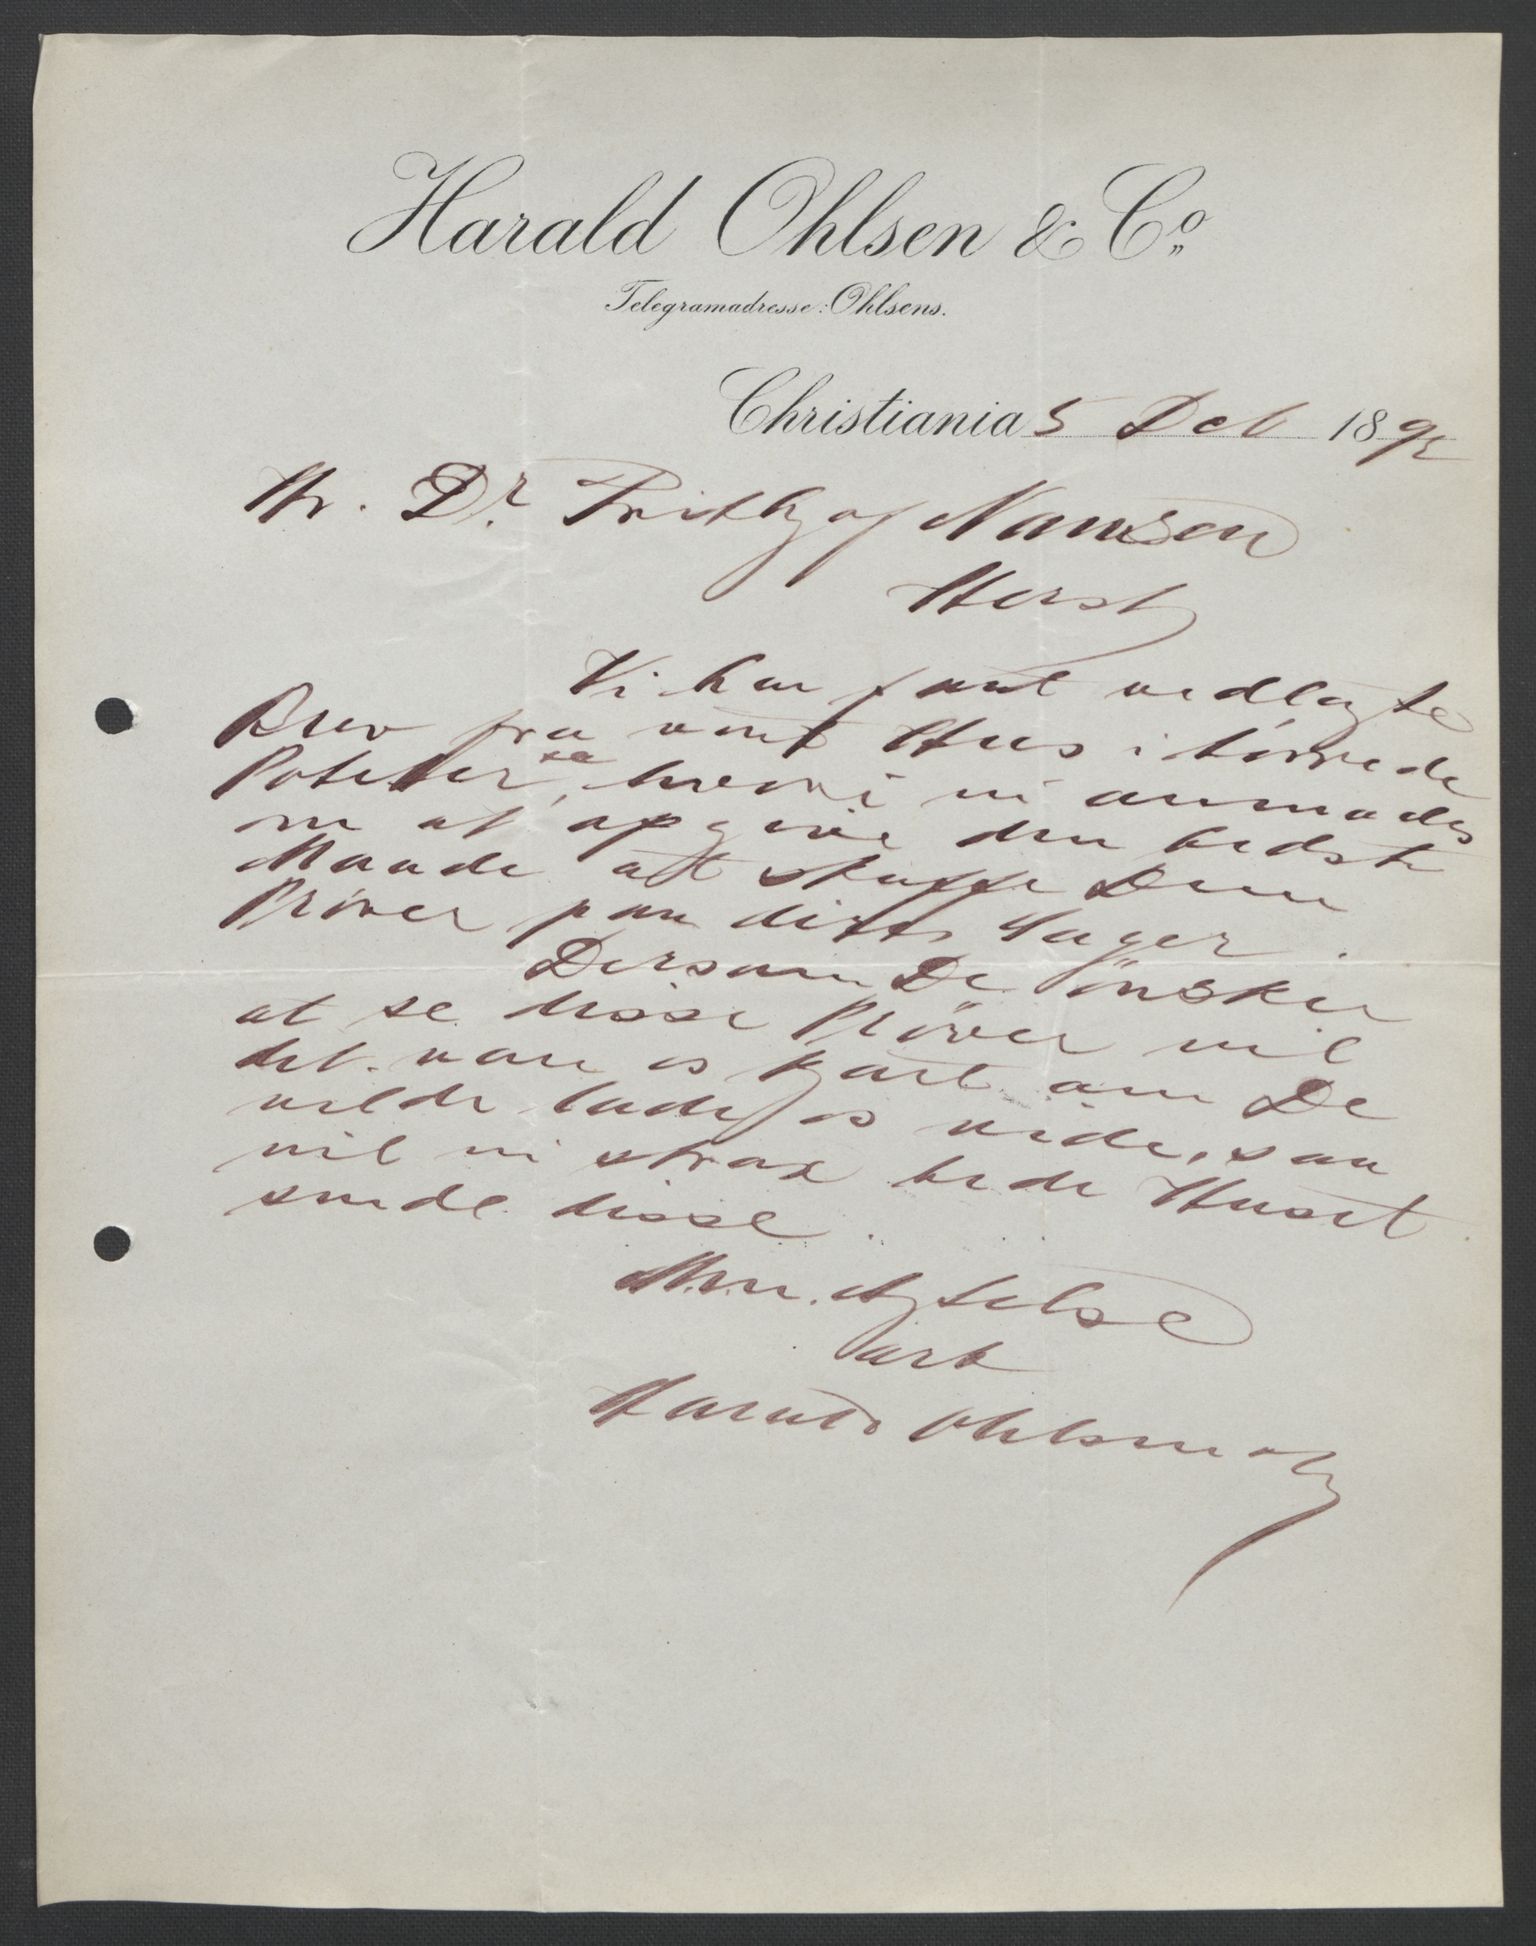 Harald Ohlsen & Co
Telegramadresse: Ohlsens.
Christiania 5 Deb 1892
Hr. Dr. Frithjof Nansen
Hersh
Vi har faaet vedlagte
Brev fra vort Hus i törrede
Poteter, hvori vi anmodes
om at opgive den bedste
Maade att skaffe Dem
Pröver paa dette Lager.
Dersom De önsker
at se disse Pröver vil
det være os kjært om De
vilde lade os vide, saa
vil vi strax bede Huset
sende disse.
Med Agtelse
ærb
Harald Ohlsen & Co